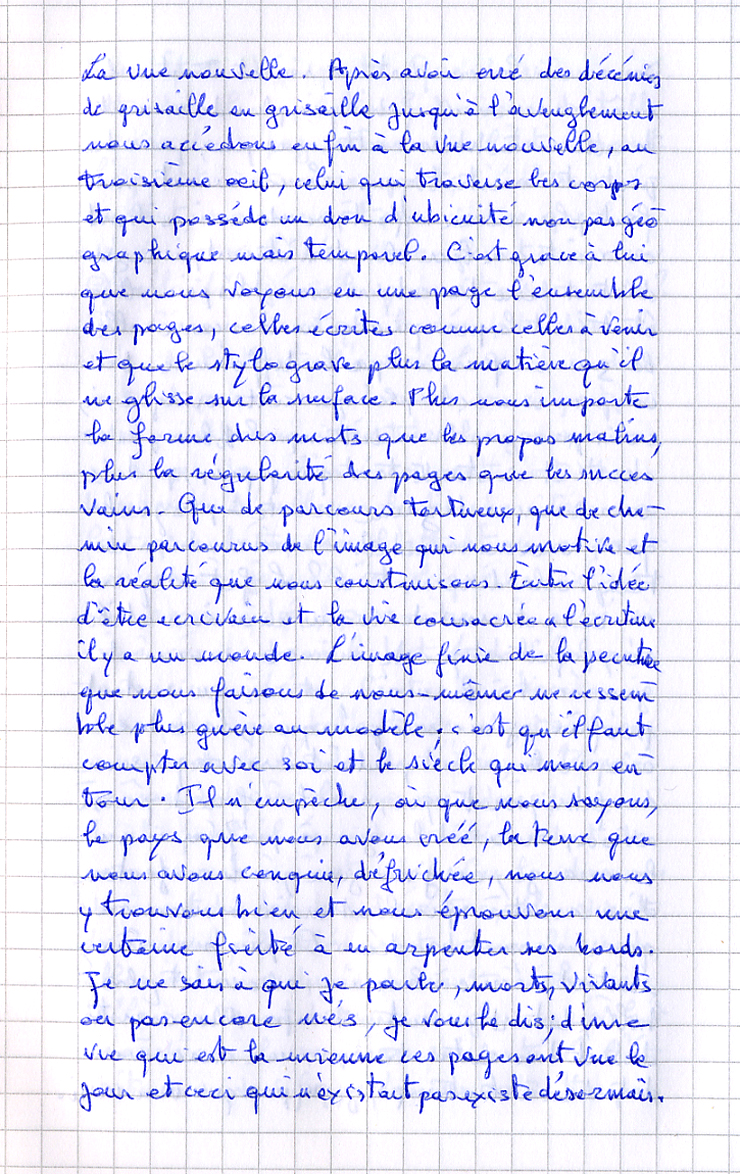 La vue nouvelle. Après avoir erré des décénies
de grisaille en grisaille jusqu'à l'aveuglement
nous accédons enfin à la vue nouvelle, au
troisième oeil, celui qui traverse les corps
et qui posséde un don d'ubicuité non pas géo
graphique mais temporel. C'est grace à lui
que nous voyons en une page l'ensemble
des pages, celles écrites comme celles à venir
et que le stylo grave plus la matière qu'il
ne glisse sur la surface. Plus nous importe
la forme des mots que les propos malins,
plus la régularité des pages que les succes
vains. Que de parcours tortueux, que de che-
min parcourus de l'image qui nous motive et
la réalité que nous construisons. Entre l'idée
d'être ecrivain et la vie consacrée a l'écriture
il y a un monde. L'image finie de la
que nous faisons de nous-même ne ressem
ble plus guère au modèle; c'est qu'il faut
compter avec soi et le siècle qui nous en
tour. Il n'empêche, où que nous soyons,
le pays que nous avons créé, la terre que
nous avons conquise, défrichée, nous nous
y trouvons bien et nous éprouvons une
certaine fierté à en arpenter ses bords.
Je ne sais à qui je parle, morts, vivants
ou pas encore nés, je vous le dis; d'une
vie qui est la mienne ces pages ont vue le
jour et ceci qui n'existait pas existe désormais.